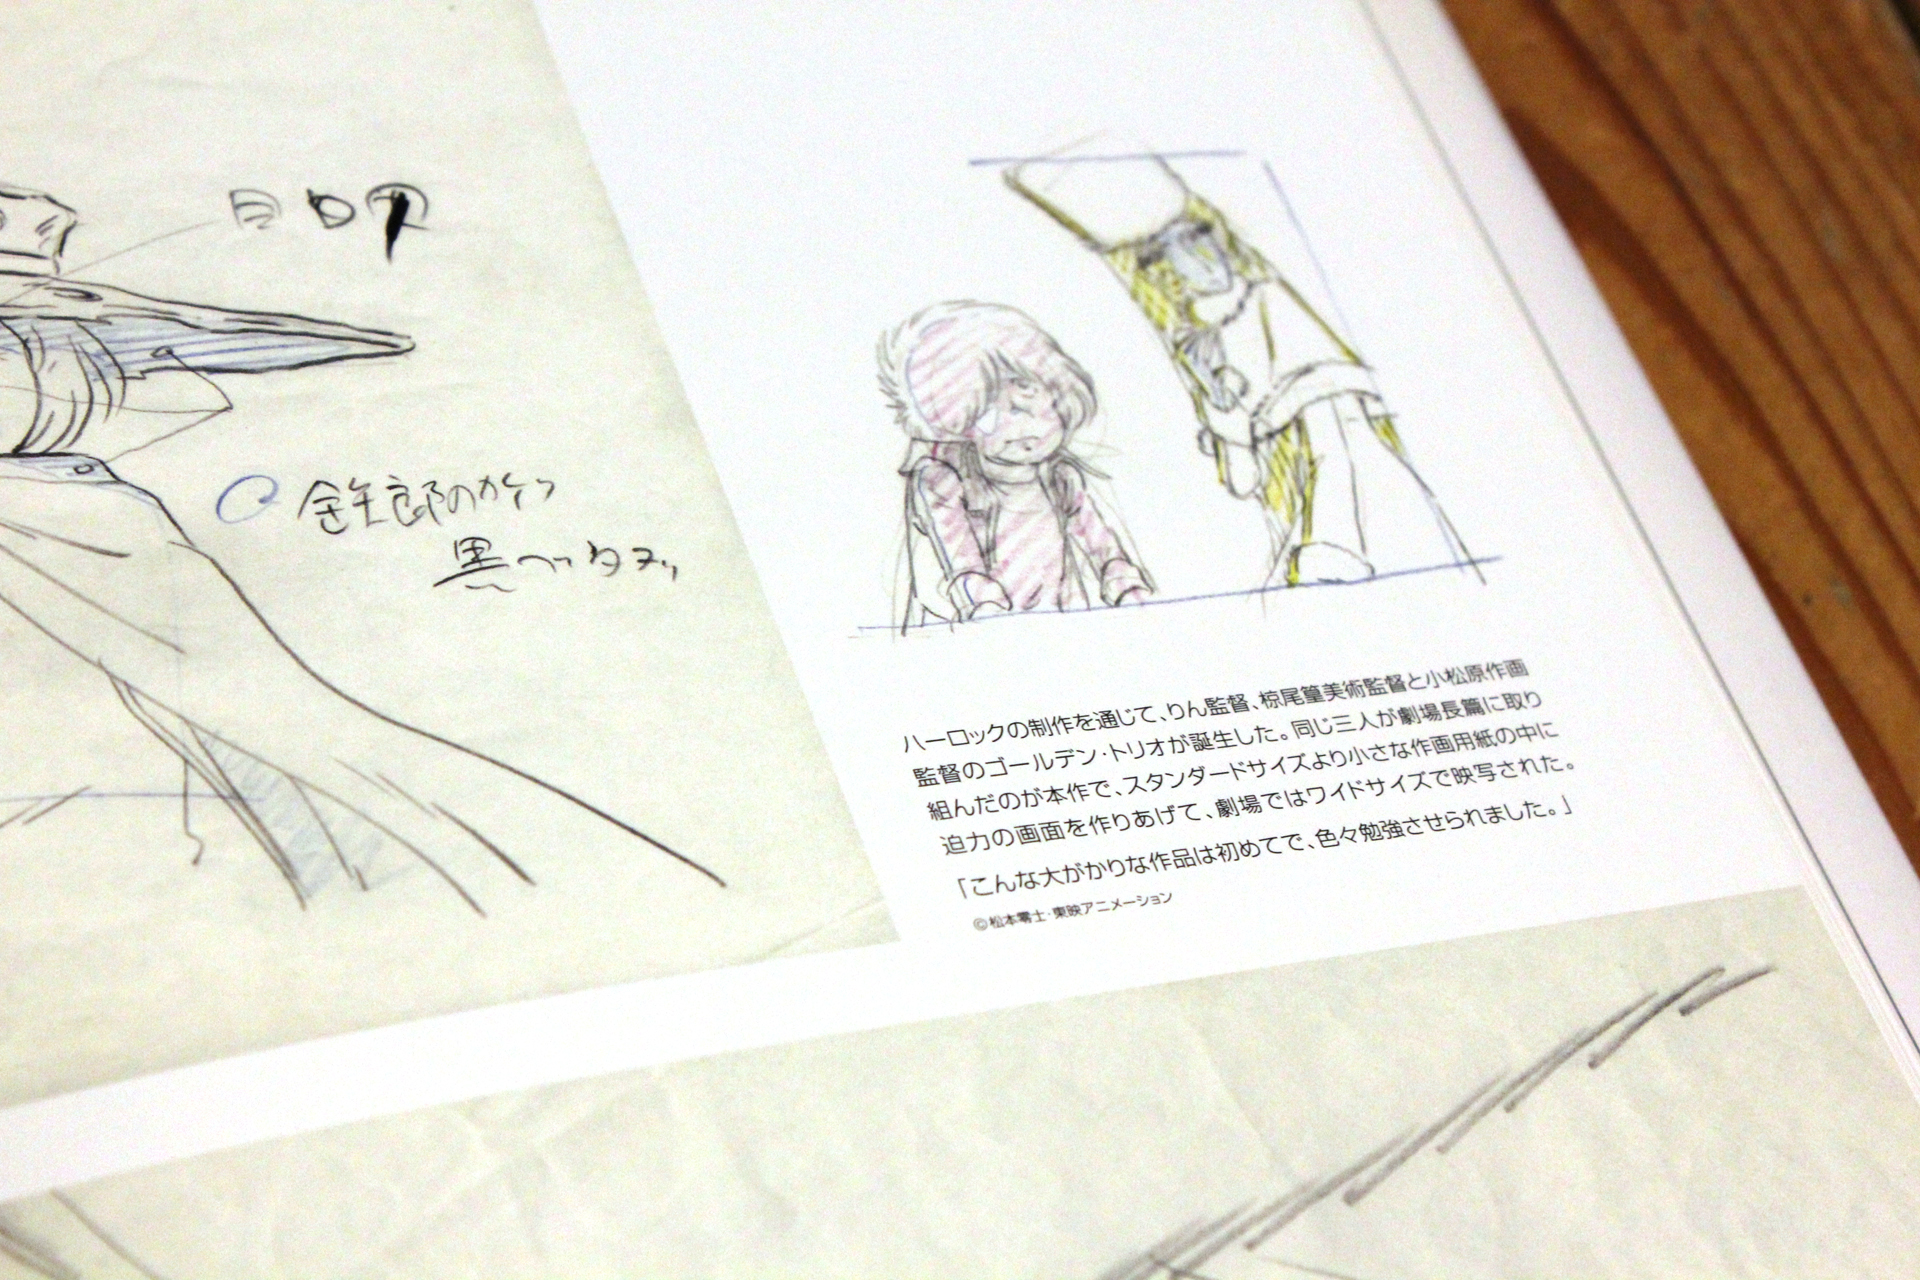 鉄郎のカゲつ
黒ベッタヌリ
ハーロックの制作を通じて、りん監督、椋尾篁美術監督と小松原作画
監督のゴールデン・トリオが誕生した。同じ三人が劇場長篇に取り
組んだのが本作で、スタンダードサイズより小さな作画用紙の中に
迫力の画面を作りあげて、劇場ではワイドサイズで映写された。
「こんな大がかりな作品は初めてで、色々勉強させられました。」
©松本零士・東映アニメーション